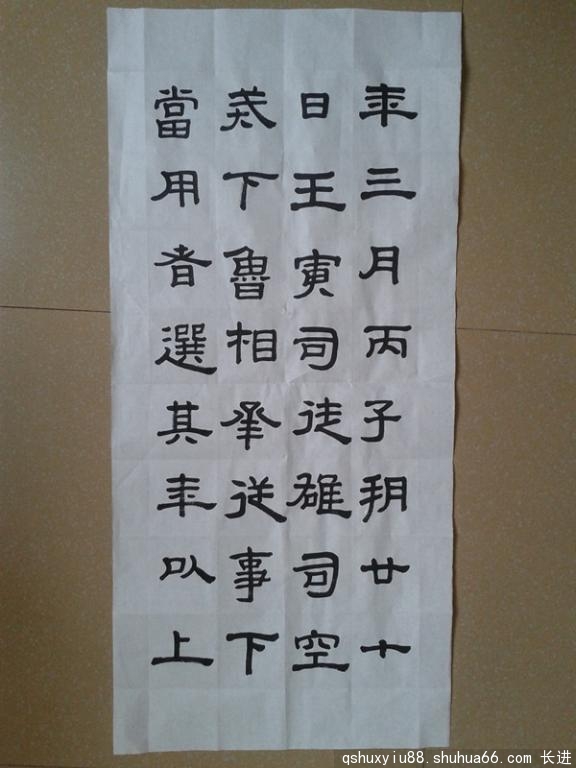 年三月丙子朔廿十
日王寅司徒雄司空
戒下魯相承従事下
當用者選其年以上
qshuxyiu88.shuhua66.com 长进